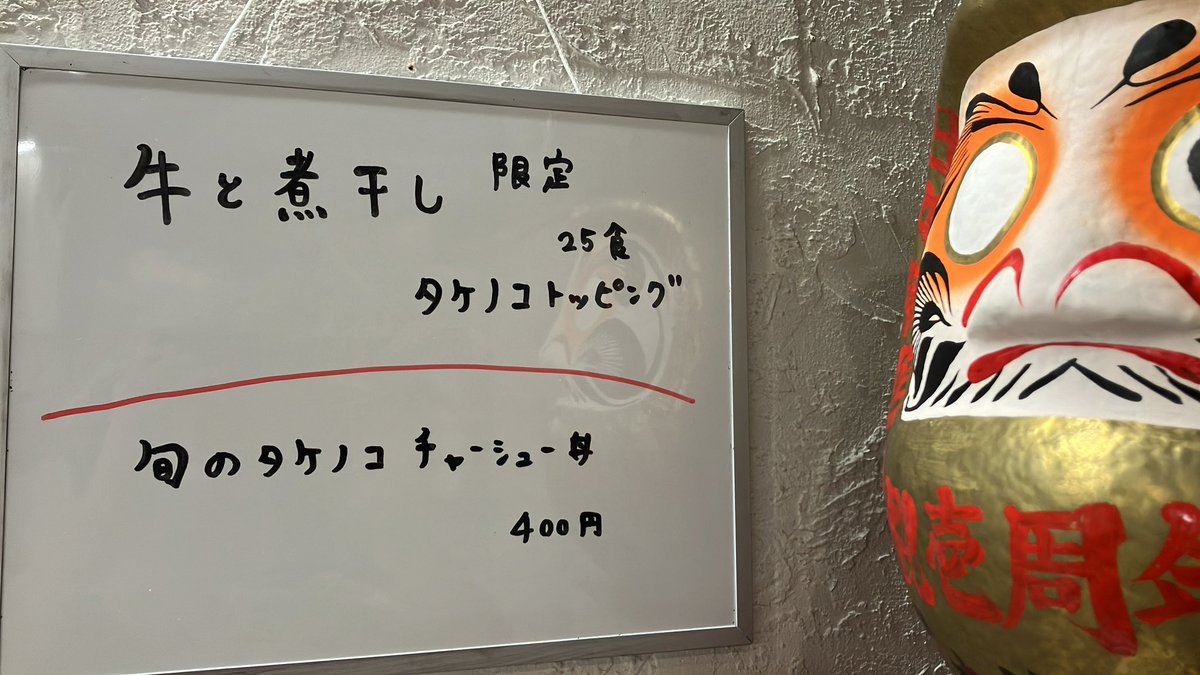 牛と煮干し 限定
25食
タケノコトッピング
旬のタケノコチャーシュー丼
400円
祝壱周年